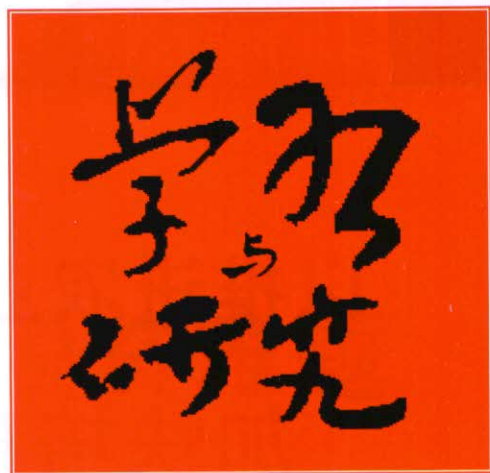 学习
与
研究